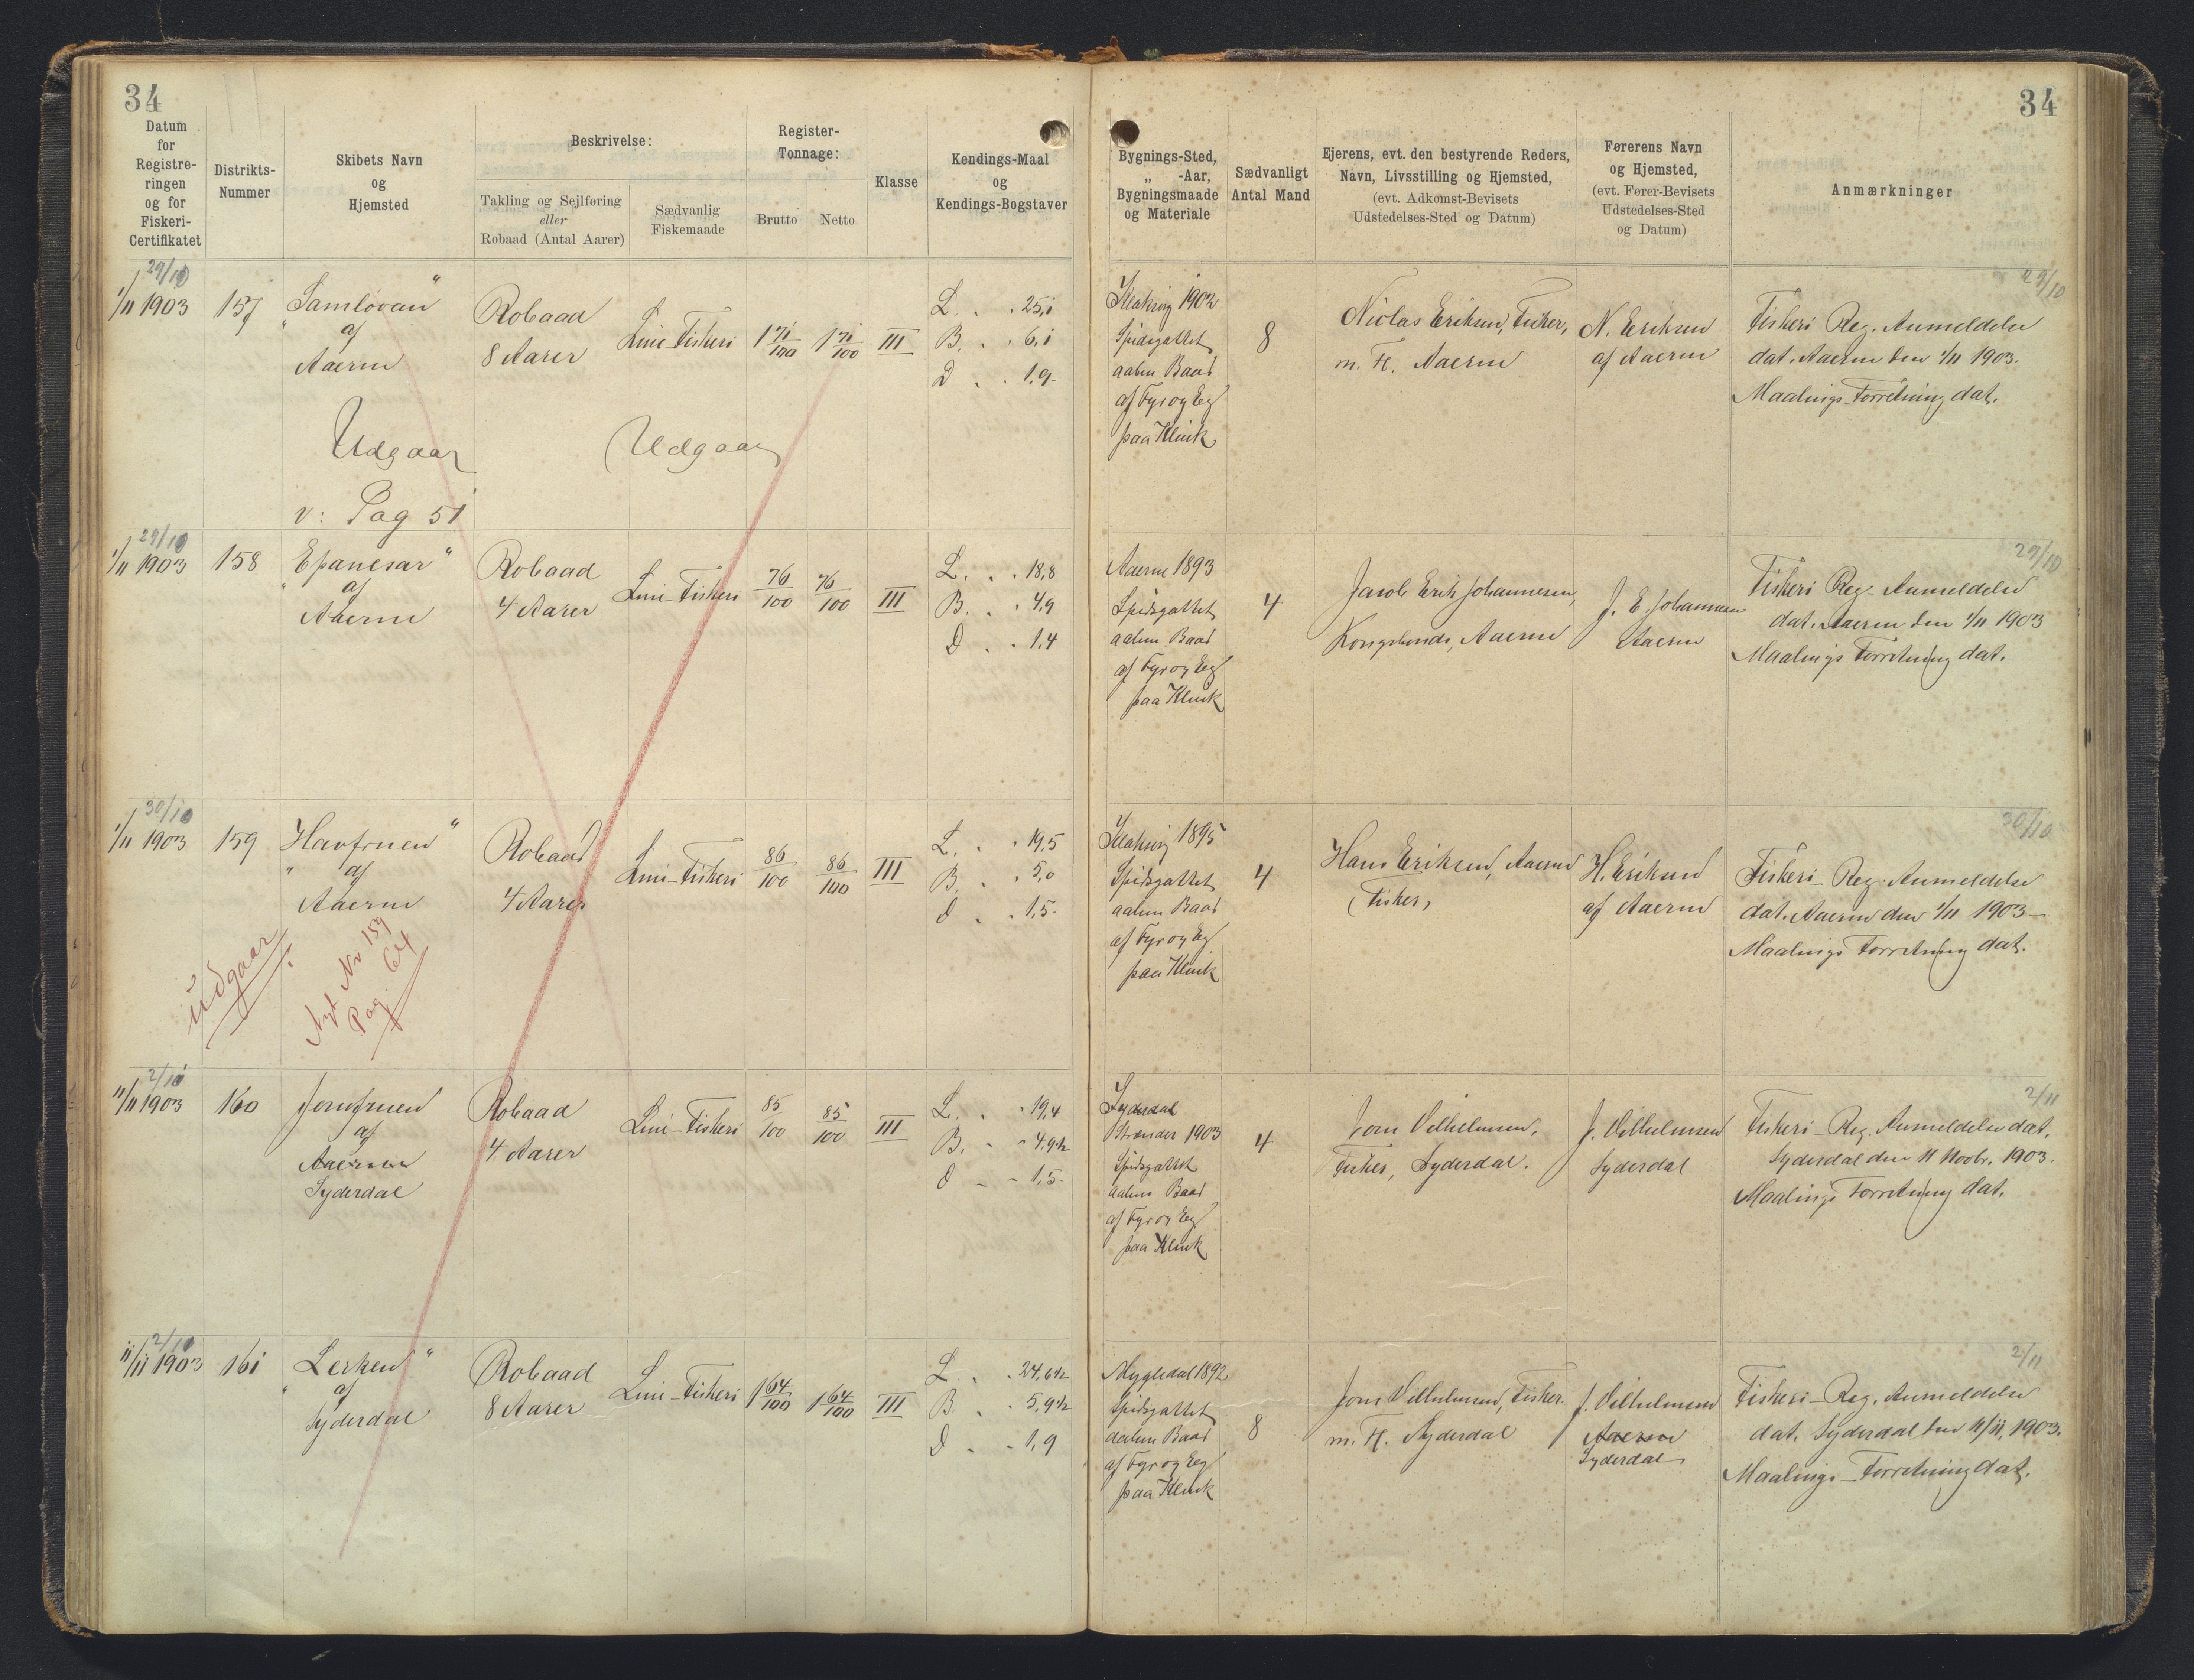 34
34
Datum
for
Registre-
ringen
og for
Fiskeri-
Certifikatet
Distrikts-
Nummer
Skibets Navn
og
Hjemsted
Beskrivelse:
Takling og Sejlføring
eller
Robaad (Antal Aarer)
Sædvanlig
Fiskemaade
Register-
Tonnage:
Brutto
Netto
Klasse
Kendings-Maal
og
Kendings-Bogstaver
Bygnings-Sted,
„ -Aar,
Bygningsmaade
og Materiale
Sædvanligt
Antal Mand
Ejerens, evt. den bestyrende Reders,
Navn, Livsstilling og Hjemsted,
(evt. Adkomst-Bevisets
Udstedelses-Sted og Datum)
Førerens Navn
og Hjemsted,
(evt. Fører-Bevisets
Udstedelses-Sted
og Datum)
Anmærkninger
29/10
1/11 1903
157
"Samlovan"
af
Aaerne
Robaad
8 Aarer
Line-Fiskeri
1 71/100
1 71/100
III
L. . . 25,1
B. . . 6,1
D . . 1,9
Klaksvig 1902
Spidsgattet
aaben Baad
af Fyr og Eeg
paa Klink
8
Niclas Eriksen, Fisker,
m. Fl. Aaerne
N. Eriksen
af Aaerne
29/10
Fiskeri Reg. Anmeldelse
dat. Aaerne den 1/11 1903.
Maalings-Forretning dat.
Udgaar
Udgaar
v: Pag 51
29/10
1/11 1903
158
"Epanesar"
af
Aaerne
Robaad
4 Aarer
Line-Fiskeri
76/100
76/100
III
L. . . 18,8
B. . . 4,9
D . . 1,4
Aaerne 1893
Spidsgattet
aaben Baad
af Fyr og Eeg
paa Klink
4
Jacob Erik Johannesen,
Kongsbonde, Aaerne
J. E. Johannesen
Aaerne
29/10
Fiskeri Reg. Anmeldelse
dat. Aaerne den 1/11 1903
Maalings Forretning dat.
30/10
1/11 1903
159
"Havfruen"
af
Aaerne
Robaad
4 Aarer
Line-Fiskeri
86/100
86/100
III
L. . . 19,5
B. . . 5,0
D . . 1,5
Klaksvig 1895
Spidsgattet
aaben Baad
af Fyr og Eeg
paa Klink
4
Hans Eriksen, Aaerne
Fisker,
H. Eriksen
af Aaerne
30/10
Fiskeri-Reg. Anmeldelse
dat. Aaerne den 1/11 1903
Maalings Forretning dat.
Udgaar
Nyt Nr 159
Pag. 64
2/10
11/11 1903
160
Jomfruen
af
Aaerne
Syderdal
Robaad
4 Aarer
Line-Fiskeri
85/100
85/100
III
L. . . 19,4
B. . . 4,9½
D . . 1,5
Syderdal
Strender 1903
Spidsgattet
aaben Baad
af Fyr og Eeg
paa Klink
4
Joen Vilhelmsen,
Fisker, Syderdal.
J. Vilhelmsen
Syderdal
2/11
Fiskeri-Reg. Anmeldelse dat.
Syderdal den 11 Novbr. 1903.
Maalings Forretning dat.
2/10
11/11 1903
161
"Lerken"
af
Syderdal
Robaad
8 Aarer
Line-Fiskeri
1 64/100
1 64/100
III
L . . 24,6½
B . . 5,9½
D . . 1,9
Mygledal 1892
Spidsgattet
aaben Baad
af Fyr og Eeg
paa Klink
8
Joen Vilhelmsen, Fisker
m. Fl. Syderdal
J. Vilhelmsen
Aaerne
Syderdal
2/11
Fiskeri-Reg. Anmeldelse
dat. Syderdal den 11/11, 1903.
Maalings-Forretning dat.